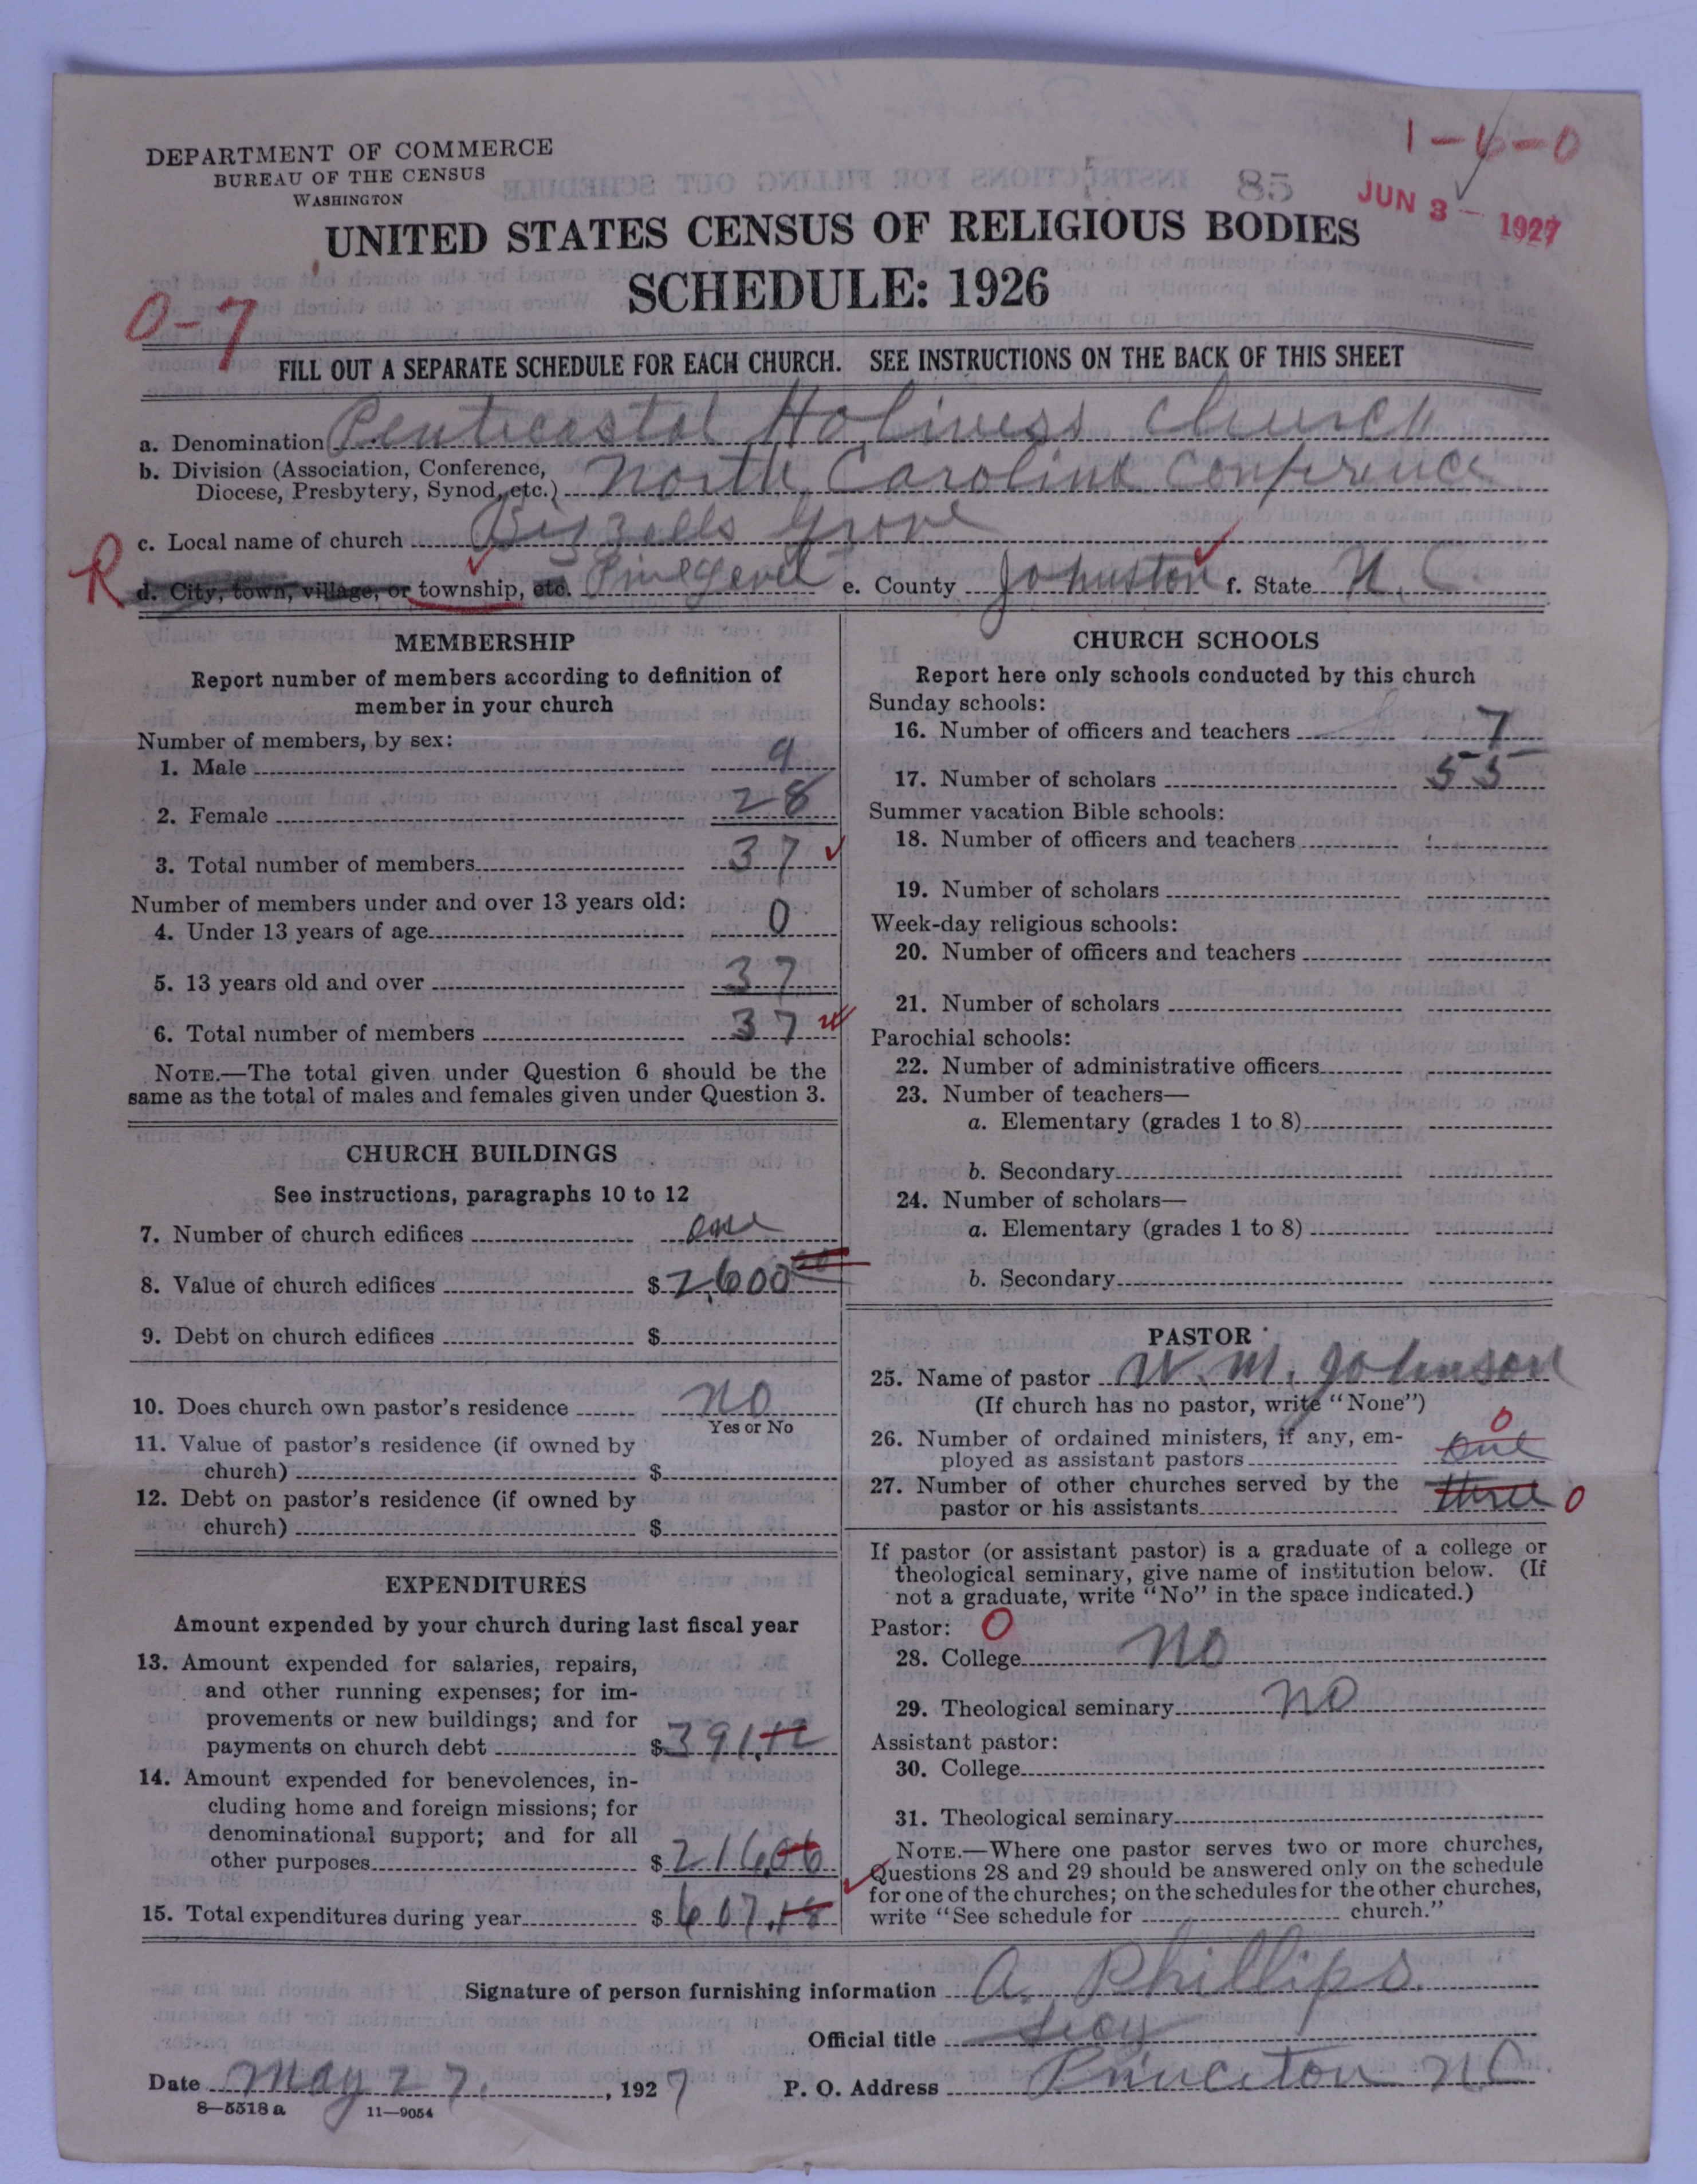 1-6-0
DEPARTMENT OF COMMERCE
BUREAU OF THE CENSUS
WASHINGTON
85
JUN 3 - 1927
UNITED STATES CENSUS OF RELIGIOUS BODIES
SCHEDULE: 1926
0-7
FILL OUT A SEPARATE SCHEDULE FOR EACH CHURCH. SEE INSTRUCTIONS ON THE BACK OF THIS SHEET
a. Denomination Penticostal Holiness Church
b. Division (Association, Conference,
Diocese, Presbytery, Synod, etc.) North Carolina Conference
c. Local name of church Bizzells Grove
R d. City, town, village, or township, etc. Pine Level e. County Johnston f. State N. C.
MEMBERSHIP
Report number of members according to definition of
member in your church
Number of members, by sex:
1. Male 9
2. Female 28
3. Total number of members 37
Number of members under and over 13 years old:
4. Under 13 years of age 0
5. 13 years old and over 37
6. Total number of members 37
NOTE.—The total given under Question 6 should be the
same as the total of males and females given under Question 3.
CHURCH BUILDINGS
See instructions, paragraphs 10 to 12
7. Number of church edifices one
8. Value of church edifices $2,600 00
9. Debt on church edifices $
10. Does church own pastor's residence no
Yes or No
11. Value of pastor's residence (if owned by
church) $
12. Debt on pastor's residence (if owned by
church) $
EXPENDITURES
Amount expended by your church during last fiscal year
13. Amount expended for salaries, repairs,
and other running expenses; for im-
provements or new buildings; and for
payments on church debt $391.12
14. Amount expended for benevolences, in-
cluding home and foreign missions; for
denominational support; and for all
other purposes $216.06
15. Total expenditures during year $607.18
CHURCH SCHOOLS
Report here only schools conducted by this church
Sunday schools:
16. Number of officers and teachers 7
17. Number of scholars 55
Summer vacation Bible schools:
18. Number of officers and teachers
19. Number of scholars
Week-day religious schools:
20. Number of officers and teachers
21. Number of scholars
Parochial schools:
22. Number of administrative officers
23. Number of teachers—
a. Elementary (grades 1 to 8)
b. Secondary
24. Number of scholars—
a. Elementary (grades 1 to 8)
b. Secondary
PASTOR
25. Name of pastor W. M. Johnson
(If church has no pastor, write "None")
26. Number of ordained ministers, if any, em-
ployed as assistant pastors one 0
27. Number of other churches served by the
pastor or his assistants three 0
If pastor (or assistant pastor) is a graduate of a college or
theological seminary, give name of institution below. (If
not a graduate, write "No" in the space indicated.)
Pastor: 0
28. College no
29. Theological seminary no
Assistant pastor:
30. College
31. Theological seminary
NOTE.—Where one pastor serves two or more churches,
Questions 28 and 29 should be answered only on the schedule
for one of the churches; on the schedules for the other churches,
write "See schedule for church."
Signature of person furnishing information A. Phillips.
Official title Secy
Date May 27, 1927 P. O. Address Princeton N C
8—5518 a 11—9054